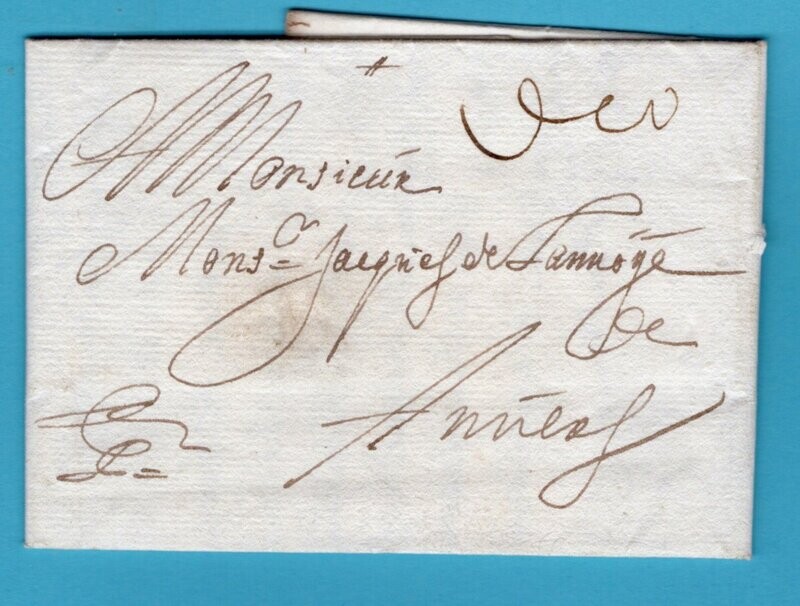 A Monsieur
Monsr Jacques de Lannoÿé
de
Anvers